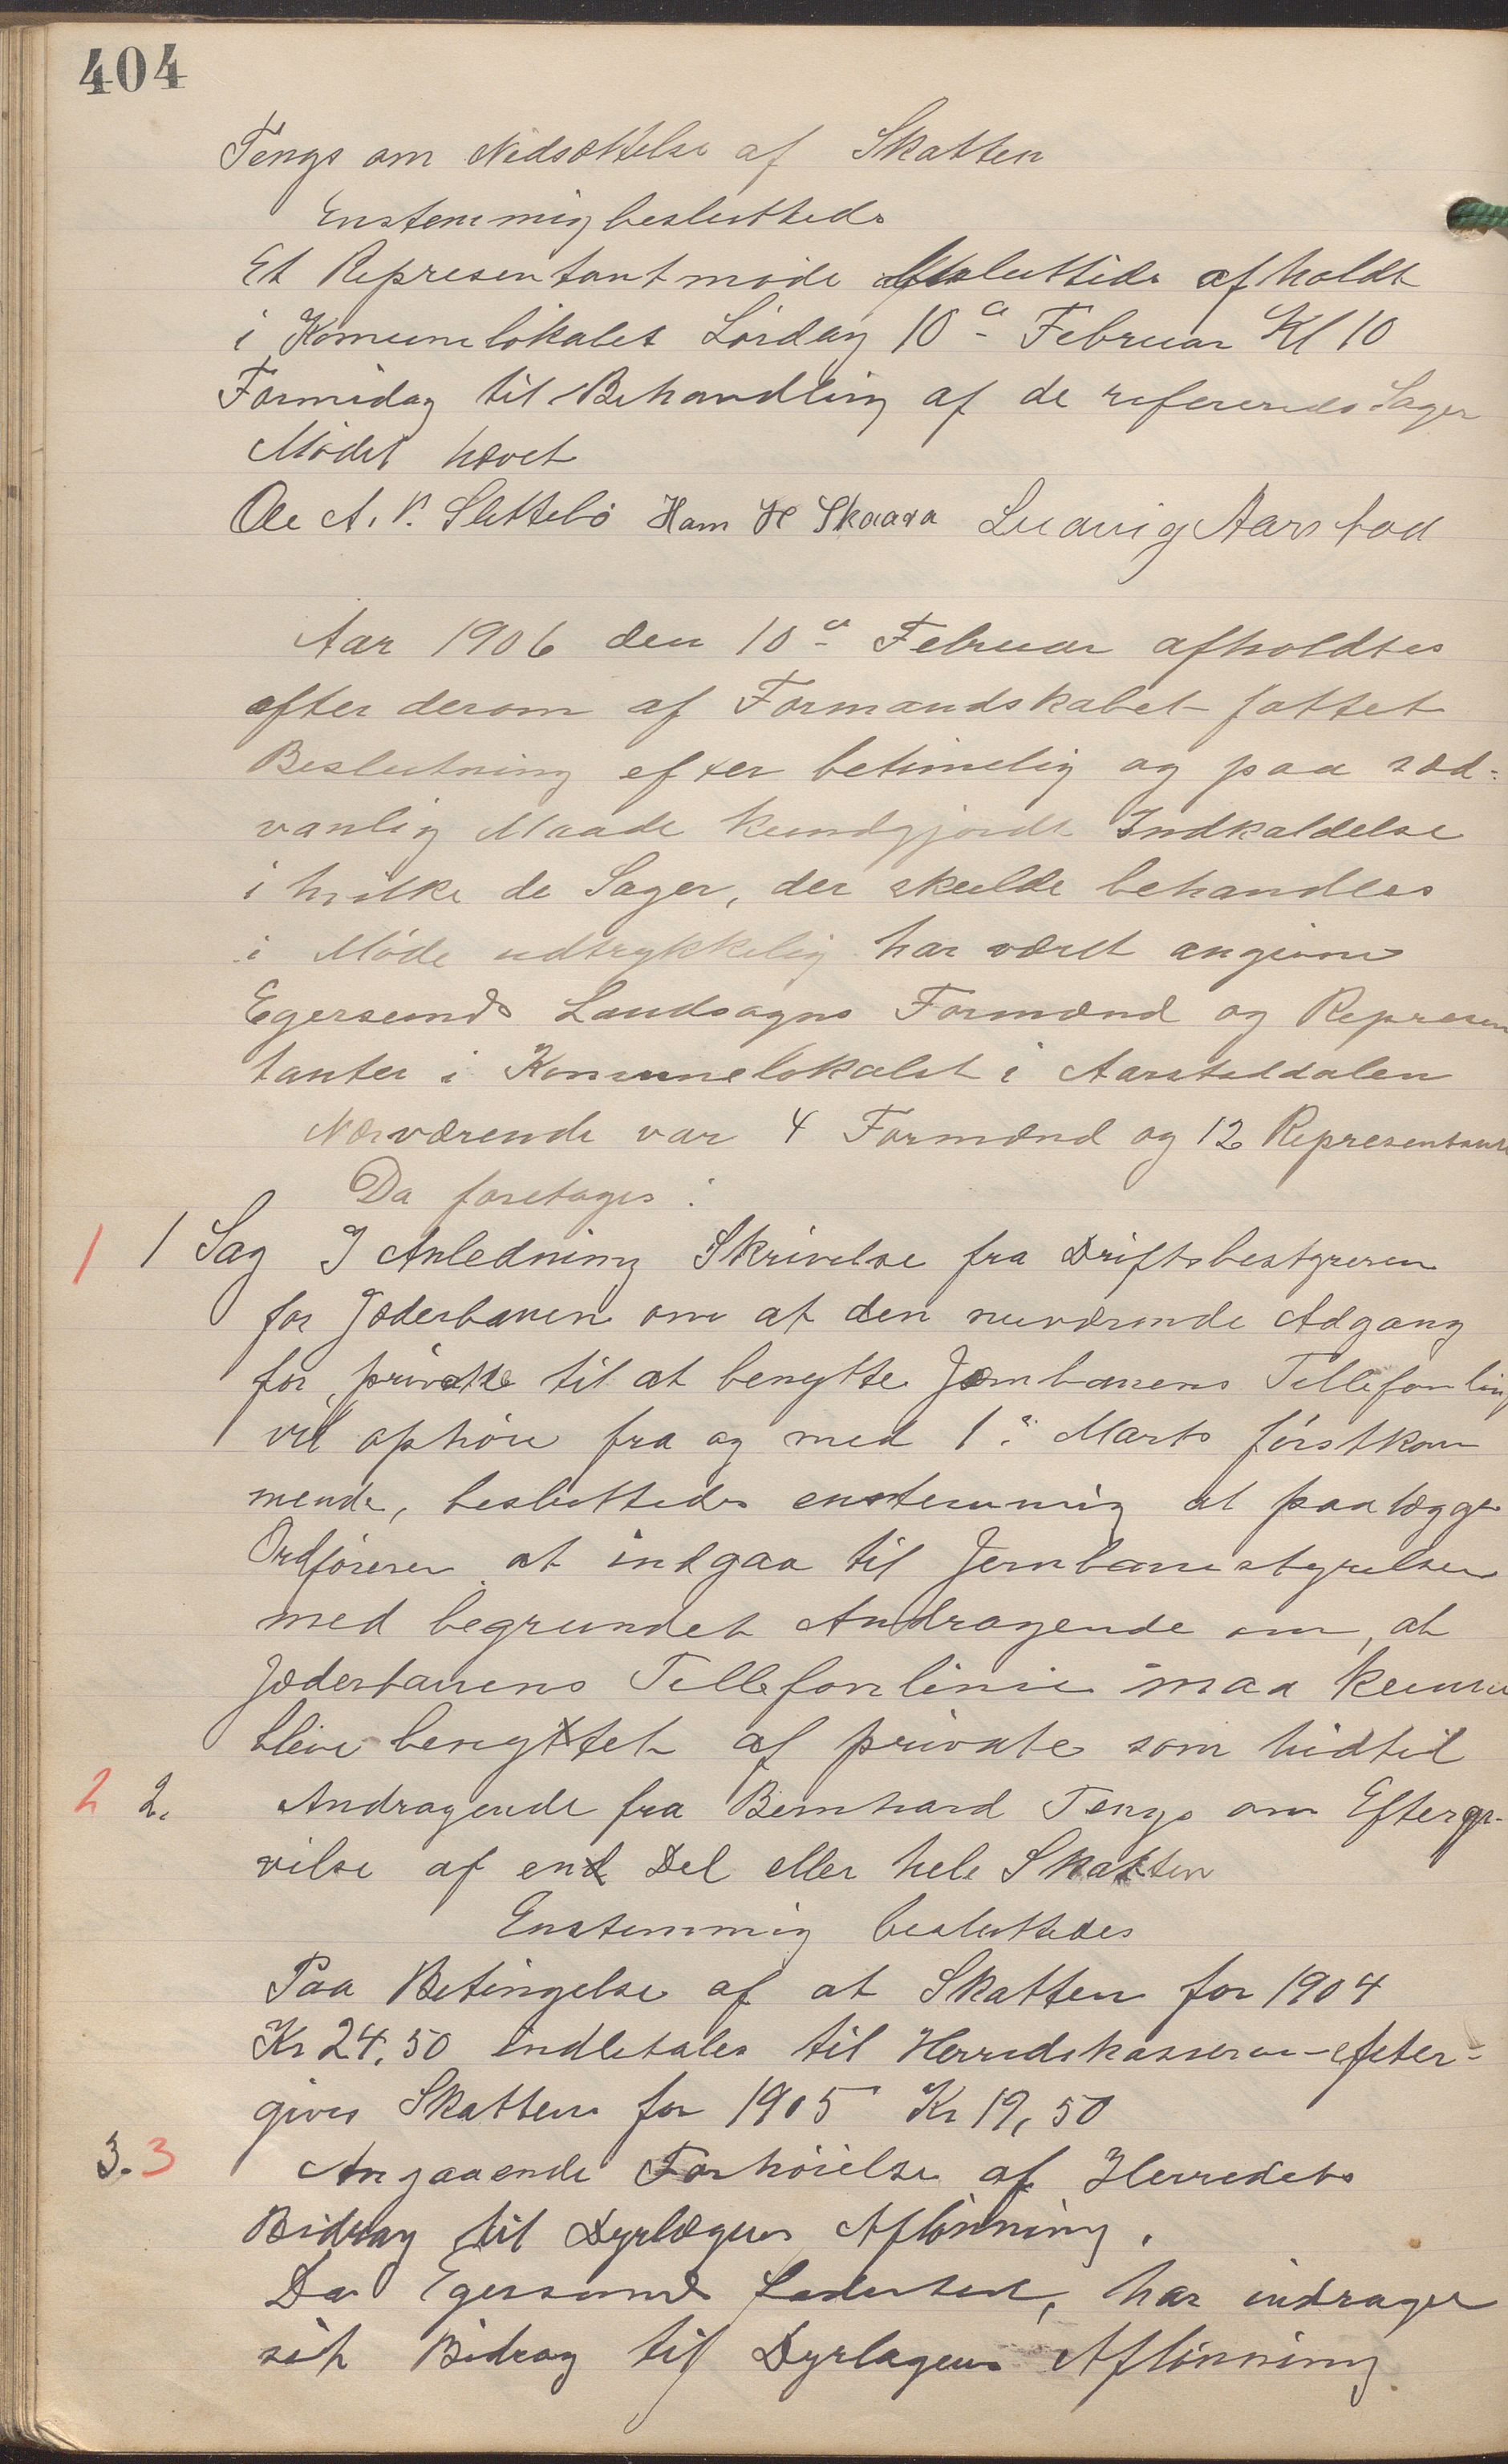 404
Tengs om Nedsættelse af Skatten
Enstemmig besluttedes
Et Representantmøde besluttedes afholdt
i Komunelokalet Lørdag 10de Februar Kl 10
Formidag til Behandling af de refererede Sager
Mødet hævet
Ole A. P. Slettebø Hans H Skaara Ludvig Aarstad
Aar 1906 den 10de Februar afholdtes
efter derom af Formandskabet fattet
Beslutning efter betimelig og paa sæd-
vanlig Maade kundgjordt Indkaldelse
i hvilke de Sager, der skulde behandles
i Møde udtrykkelig har været angivne
Egersunds Landsogns Formænd og Represen
tanter i Komunelokalet i Aarstaddalen
Nærværende var 4 Formænd og 12 Representante
Da foretoges:
1 1 Sag I Anledning Skrivelse fra Driftsbestyreren
for Jæderbanen om at den nuværende Adgang
for private til at benytte Jernbanens Tellefonlinj
vil ophøre fra og med 1ste Marts førstkom
mende, besluttedes enstemmig at paalægge
Ordføreren at indgaa til Jernbanestyrelsen
med begrundet Andragende om, at
Jæderbanens Tellefonlinie maa kunne
blive benyttet af private som hidtil
2 2. Andragende fra Bernhard Tengs om Efterga-
vilse af end Del eller hele Skatten
Enstemmig besluttedes
Paa Betingelse af at Skatten for 1904
Kr 24,50 indbetales til Herredskasseren efter-
gives Skatten for 1905 Kr 19,50
3. 3 Angaaende Forhøielse af Herredets
Bidrag til Dyrlægens Aflønning.
Da Egersund Ladested, har indraget
sit Bidrag til Dyrlagens Aflønning